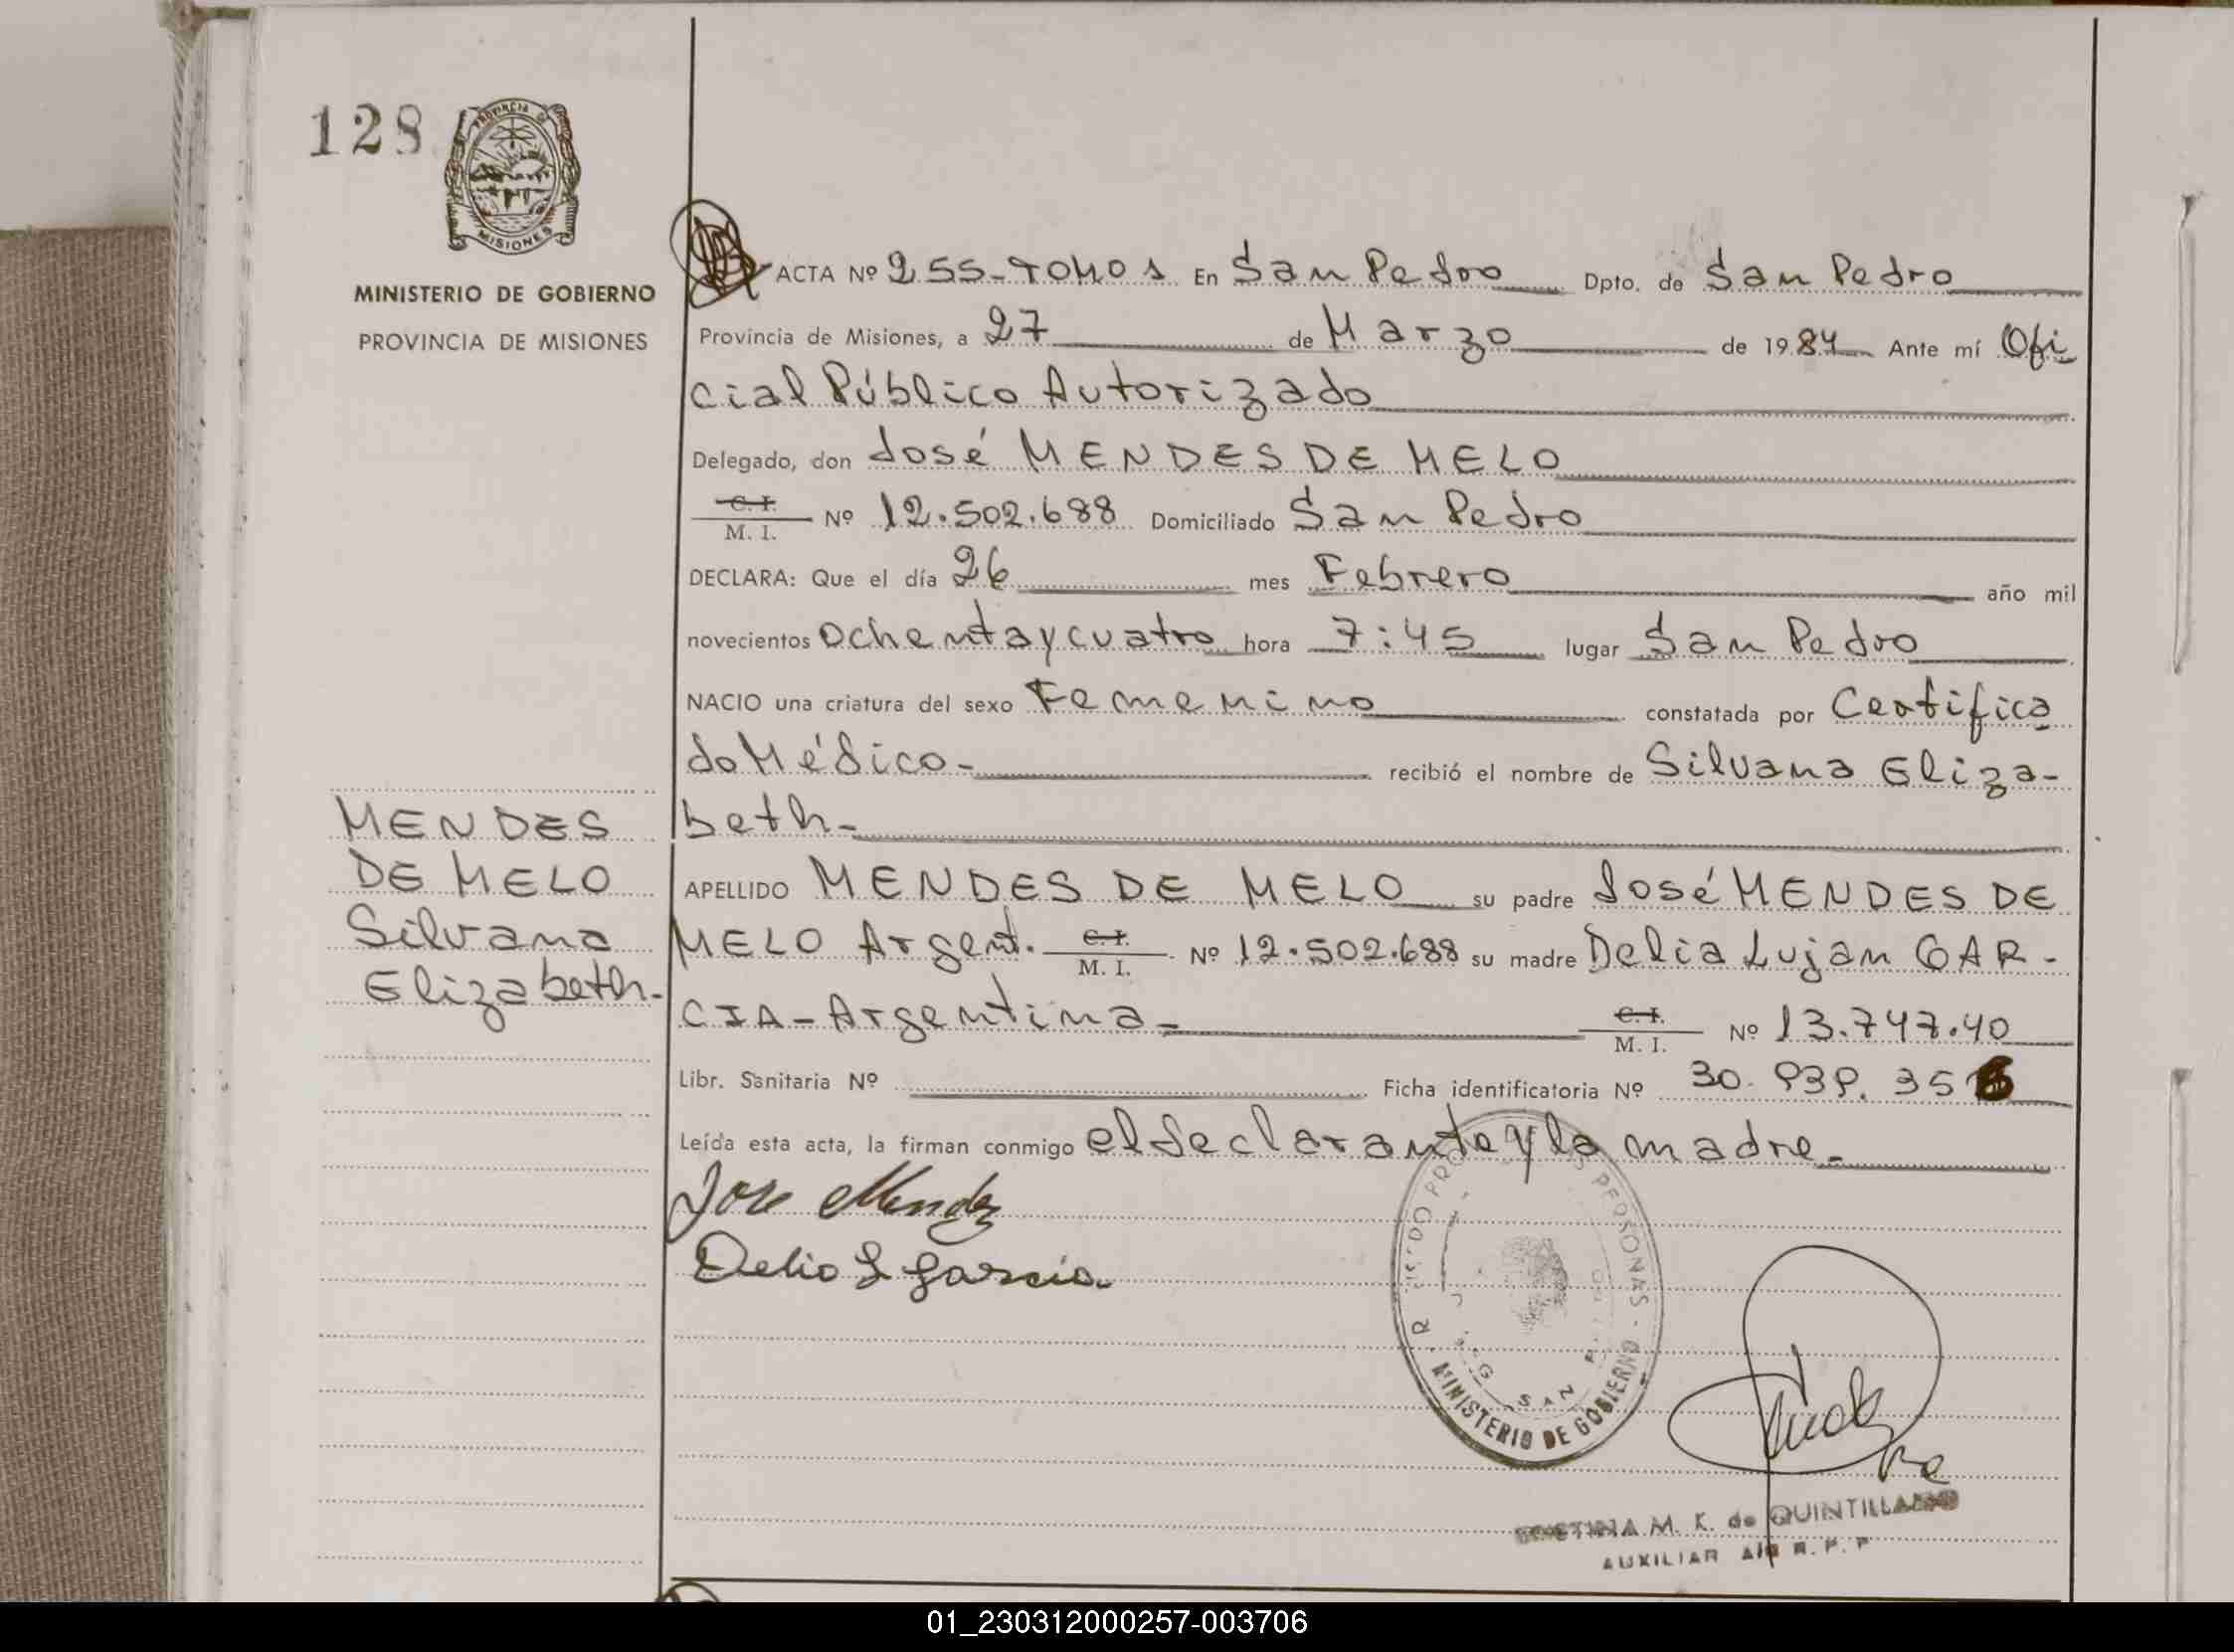 128
PROVINCIA DE
MISIONES
MINISTERIO DE GOBIERNO
PROVINCIA DE MISIONES
ACTA Nº 255-TOMO 1 En San Pedro Dpto. de San Pedro
Provincia de Misiones, a 27 de Marzo de 1984 Ante mí Ofi
cial Público Autorizado
Delegado, don José MENDES DE MELO
C. I.
M. I. Nº 12.502.688 Domiciliado San Pedro
DECLARA: Que el día 26 mes Febrero año mil
novecientos Ochenta y cuatro hora 7:45 lugar San Pedro
NACIO una criatura del sexo Femenino constatada por Certifica
do Médico- recibió el nombre de Silvana Eliza-
beth-
MENDES
DE MELO
Silvana
Elizabeth-
APELLIDO MENDES DE MELO su padre José MENDES DE
MELO Argent. C. I. M. I. Nº 12.502.688 su madre Delia Lujan GAR-
CIA-Argentina- C. I. M. I. Nº 13.747.40
Libr. Sanitaria Nº Ficha identificatoria Nº 30.939.35
Leída esta acta, la firman conmigo el declarante y la madre-
Jose Mendez
Delia L Garcia
PERSONAS - MINISTERIO DE GOBIERNO
SAN
M. K. de QUINTILLANO
AUXILIAR
01_230312000257-003706